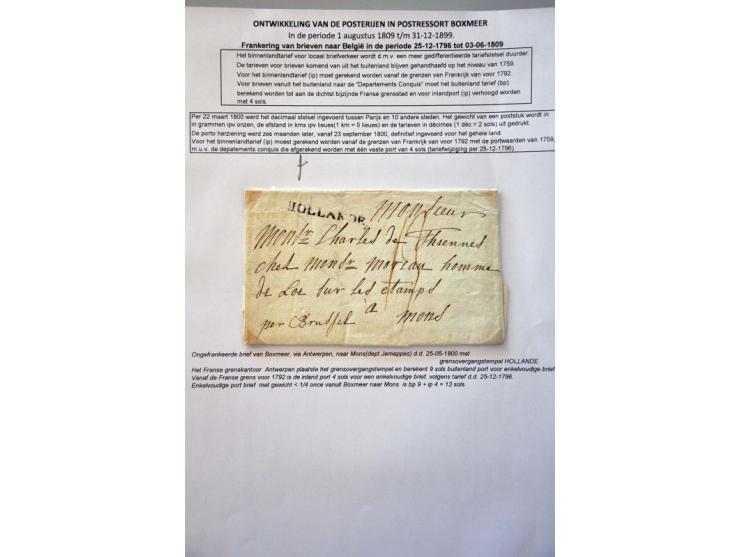 ONTWIKKELING VAN DE POSTERIJEN IN POSTRESSORT BOXMEER
In de periode 1 augustus 1809 t/m 31-12-1899.
Frankering van brieven naar België in de periode 25-12-1796 tot 03-06-1809
Het binnenlandtarief voor locaal briefverkeer wordt d.m.v. een meer gedifferentieerde tariefstelsel duurder.
De tarieven voor brieven komend van uit het buitenland blijven gehandhaafd op het niveau van 1759.
Voor het binnenlandtarief (ip) moet gerekend worden vanaf de grenzen van Frankrijk van voor 1792.
Voor brieven vanuit het buitenland naar de "Departements Conquis" moet het buitenland tarief (bp)
berekend worden tot aan de dichtst bijzijnde Franse grensstad en voor inlandport (ip) verhoogd worden
met 4 sols.
Per 22 maart 1800 werd het decimaal stelsel ingevoerd tussen Parijs en 10 andere steden. Het gewicht van een poststuk wordt in
in grammen ipv onzen, de afstand in kms ipv lieues(1 km = 5 lieues) en de tarieven in décimes (1 déc = 2 sols) uit gedrukt.
De porto herziening werd zes maanden later, vanaf 23 september 1800, definitief ingevoerd voor het gehele land.
Voor het binnenlandtarief (ip) moest gerekend worden vanaf de grenzen van Frankrijk van voor 1792 met de portwaarden van 1759,
m.u.v. de depatements conquis die afgerekend worden met één vaste port van 4 sols (tariefwijnging per 25-12-1796).
HOLLANDE
Monsieur
Monsr Charles de Thiennes
chez Monsr Moreau homme
de Loi sur les etamps
a
per Brussel mons
Ongefrankeerde brief van Boxmeer, via Antwerpen, naar Mons(dept Jemappes) d.d. 25-05-1800 met
grensovergangstempel HOLLANDE.
Het Franse grenskantoor Antwerpen plaatste het grensovergangstempel en berekent 9 sols buitenland port voor enkelvoudige brief
Vanaf de Franse grens voor 1792 is de inland port 4 sols voor een enkelvoudige brief, volgens tarief d.d. 25-12-1796.
Enkelvoudige port brief met gewicht < 1/4 once vanuit Boxmeer naar Mons is bp 9 + ip 4 = 13 sols.